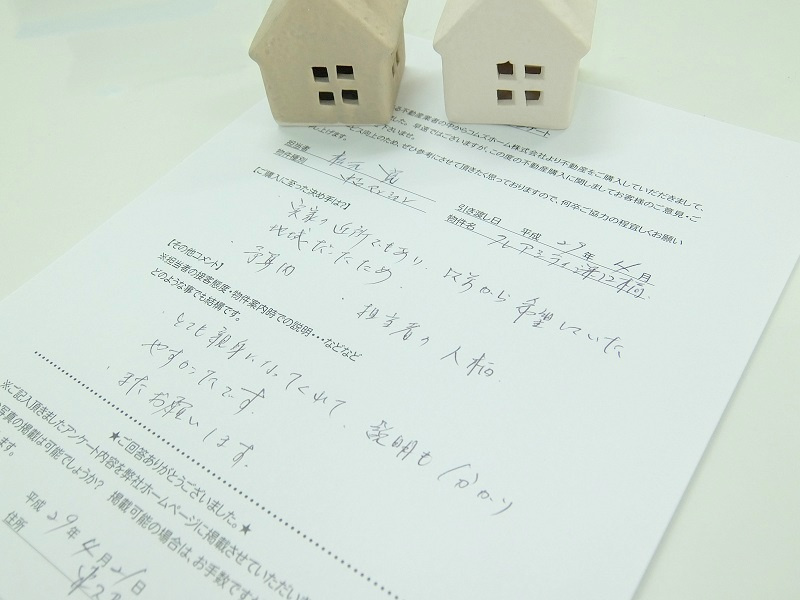 ケート
る不動産業者の中からコムズホーム株式会社より不動産をご購入していただきまして、
ました。早速ではございますが、この度の不動産購入に関しましてお客様のご意見・ご
ビス向上のため、ぜひ参考にさせて頂きたく思っておりますので、何卒ご協力の程宜しくお願い
し上げます。
担当者
物件種別
引き渡し日 平成 29年 4月
物件名
【ご購入に至った決め手は?】
・実家の近所でもあり、以前から希望していた
地域だったため
・予算内 ・担当者の人柄
【その他コメント】
※担当者の接客態度・物件案内時での説明・・・などなど
どのような事でも結構です。
・とても親身になってくれて、説明も分かり
やすかったです。
・またお願いします。
★ご回答ありがとうございました。★
※ご記入頂きましたアンケート内容を弊社ホームページに掲載させていただいま
写真の掲載は可能でしょうか? 掲載可能の場合は、お手数ですが
ます。
平成 29年 4月 21日
住所